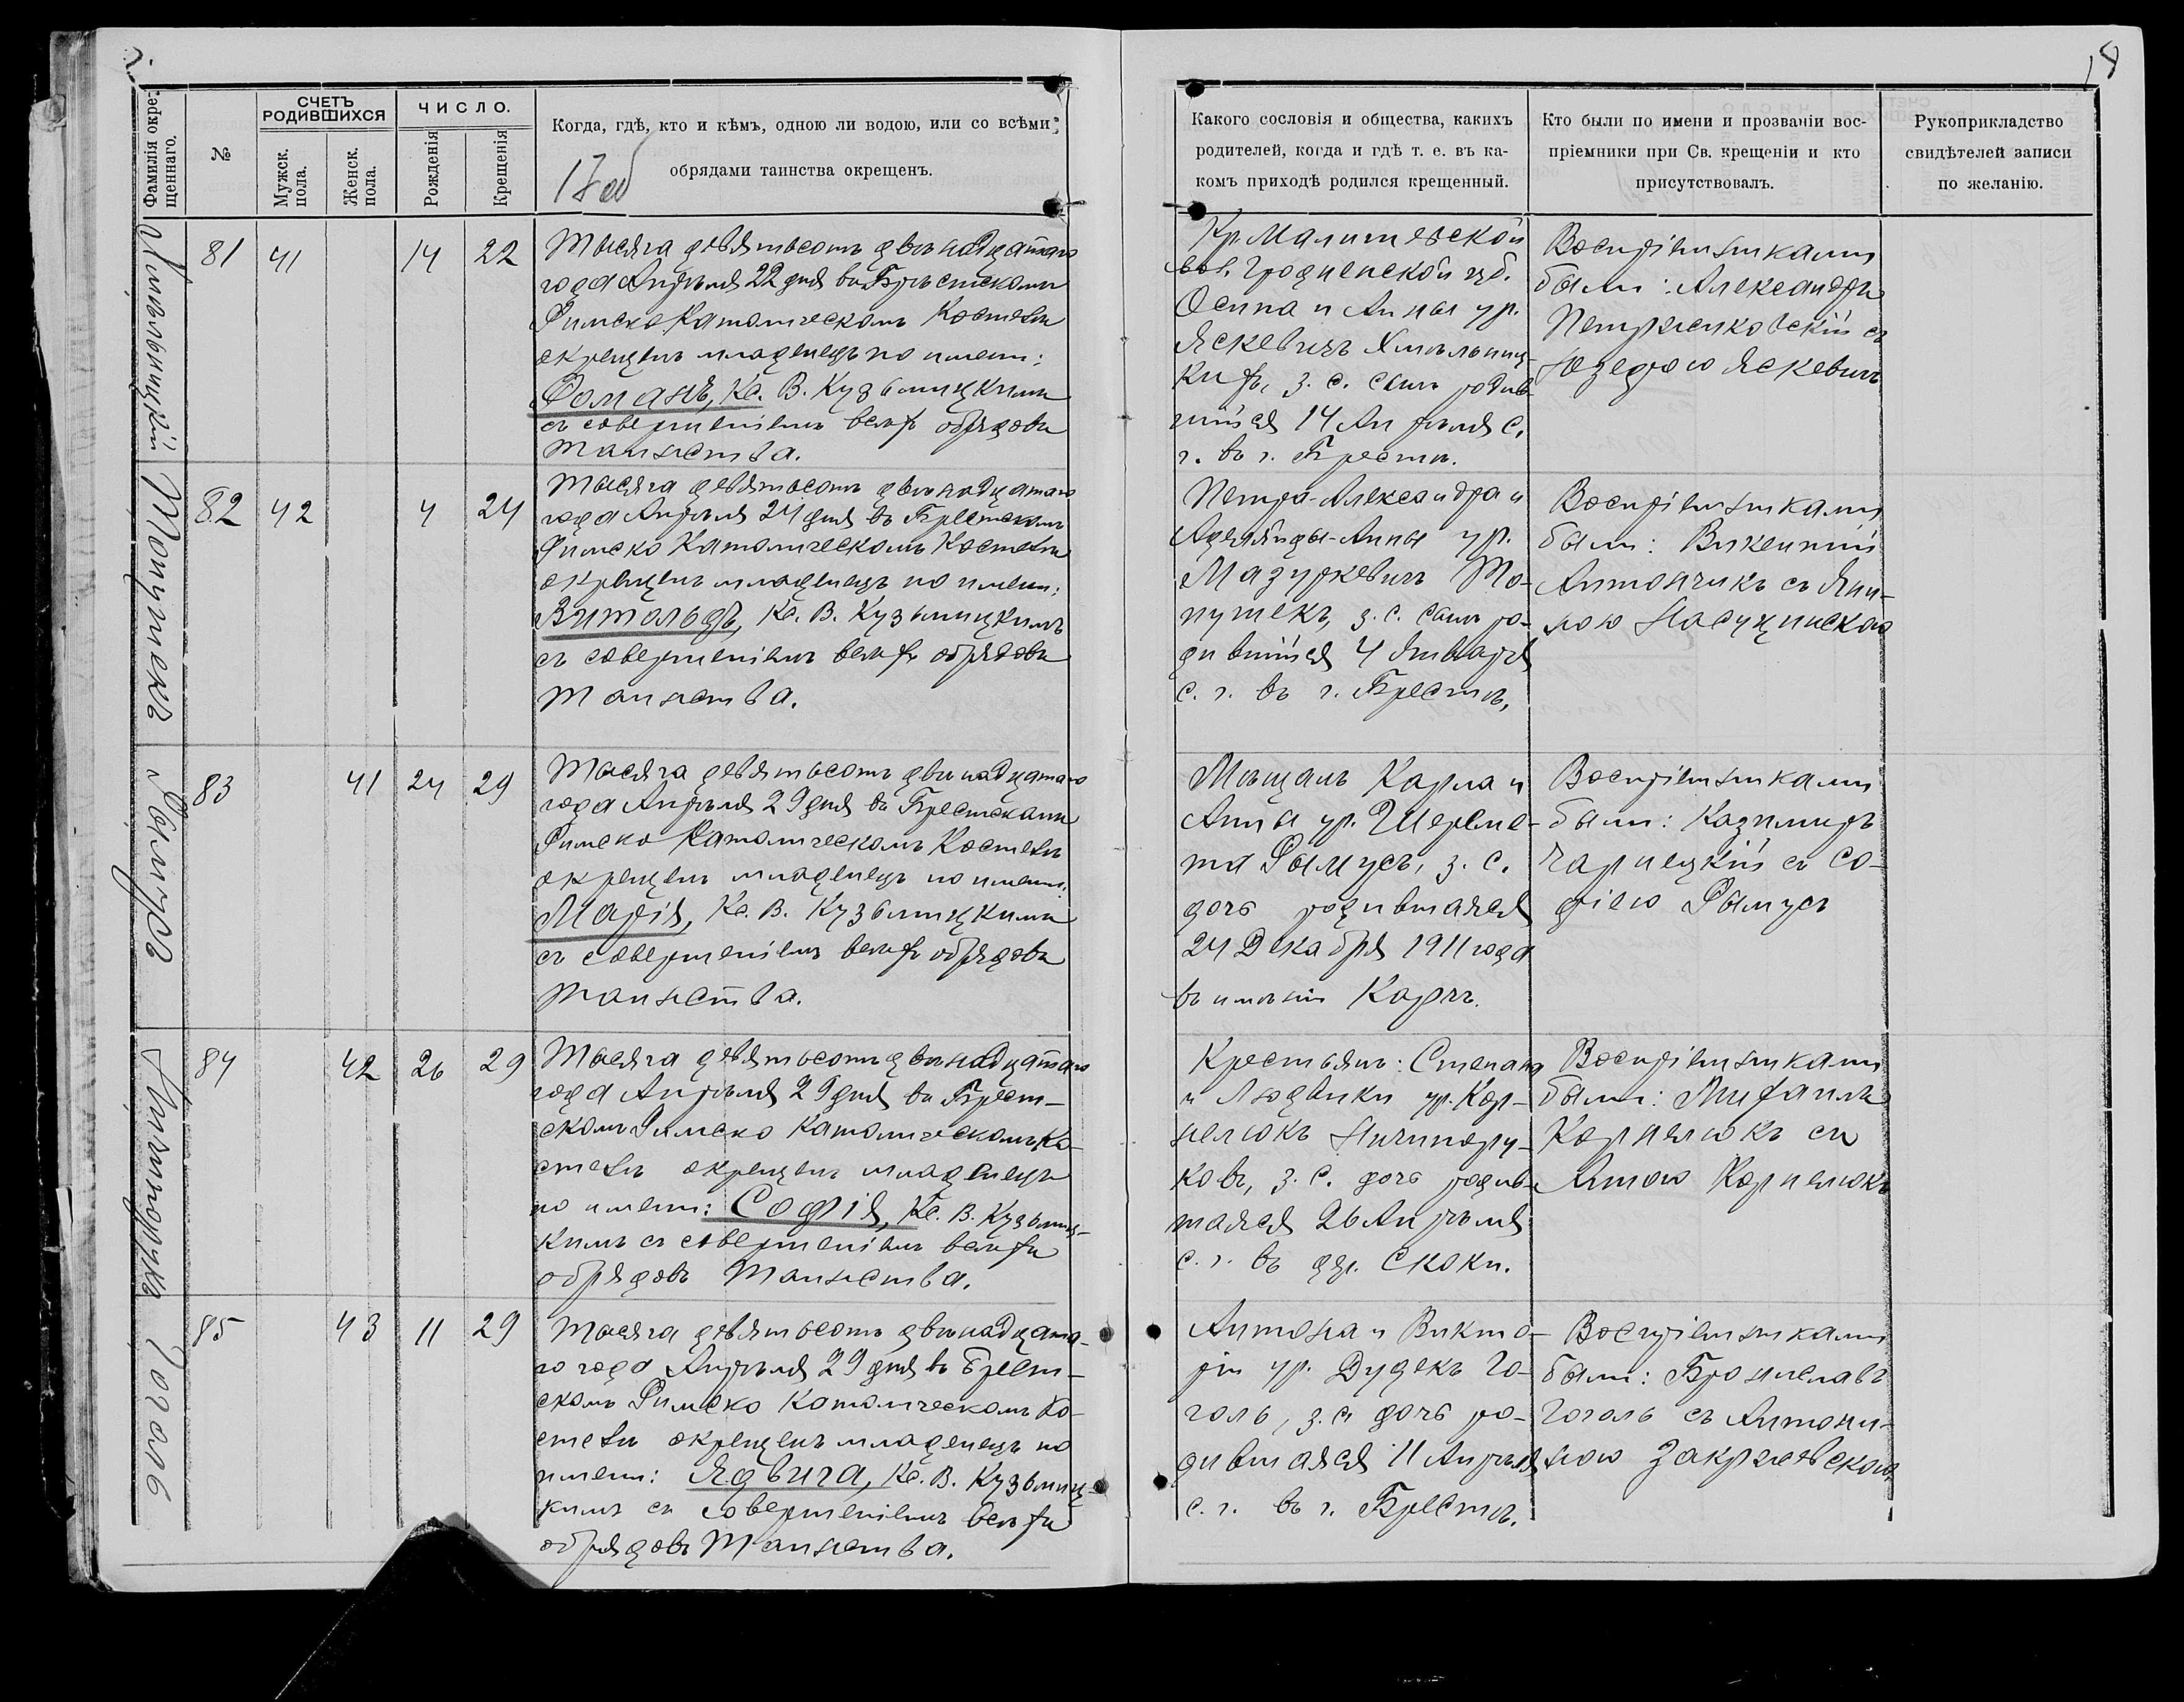 18
Фамилія окре-
щеннаго.
№
СЧЕТЪ
РОДИВШИХСЯ
Мужск.
пола.
Женск.
пола.
ЧИСЛО.
Рожденія
Крещенія
Когда, гдѣ, кто и кѣмъ, одною ли водою, или со всѣми
обрядами таинства окрещенъ.
17об
Какого сословія и общества, какихъ
родителей, когда и гдѣ т. е. въ ка-
комъ приходѣ родился крещенный.
Кто были по имени и прозваніи вос-
пріемники при Св. крещеніи и кто
присутствовалъ.
Рукоприкладство
свидѣтелей записи
по желанію.
Хмѣльницкій
81 41 14 22
Тысяча девятьсотъ двѣнадцатаго
года Апрѣля 22 дня въ Брестскомъ
Римско Католическомъ Костелѣ
окрещенъ младенецъ по имени:
Романъ, Кс. В. Кузьмицкимъ
съ совершеніемъ всѣхъ обрядовъ
Таинства.
Кр. Малишевской
вол. Гродненской губ.
Осипа и Анны ур.
Яскевичъ Хмѣльниц-
кихъ, з. с. сынъ родив-
шійся 14 Апрѣля с.
г. въ г. Брестѣ.
Воспріемниками
были: Александръ
Петржиковскій съ
Юзефою Яскевичъ
Топушекъ
82 42 4 24
Тысяча девятьсотъ двѣнадцатаго
года Апрѣля 24 дня въ Брестскомъ
Римско Католическомъ Костелѣ
окрещенъ младенецъ по имени:
Витольдъ, Кс. В. Кузьмицкимъ
съ совершеніемъ всѣхъ обрядовъ
Таинства.
Петра-Александра и
Аделяиды-Анны ур.
Мазуркевичъ То-
пушекъ, з. с. сынъ ро-
дившійся 4 Января
с. г. въ г. Брестѣ.
Воспріемниками
были: Викентій
Антончикъ съ Яни-
ною
Рымусъ
83 41 24 29
Тысяча девятьсотъ двѣнадцатаго
года Апрѣля 29 дня въ Брестскомъ
Римско Католическомъ Костелѣ
окрещенъ младенецъ по имени:
Марія, Кс. В. Кузьмицкимъ
съ совершеніемъ всѣхъ обрядовъ
Таинства.
Мѣщанъ Карла и
Анны ур. Шереме-
та Рымусъ, з. с.
дочь родившаяся
24 Декабря 1911 года
въ имѣніи
Воспріемниками
были: Казимиръ
Чарнецкій съ Со-
фіею Рымусъ
Ничипорукъ
84 42 26 29
Тысяча девятьсотъ двѣнадцатаго
года Апрѣля 29 дня въ Брест-
скомъ Римско Католическомъ Ко-
стелѣ окрещенъ младенецъ
по имени: Софія, Кс. В. Кузьмиц-
кимъ съ совершеніемъ всѣхъ
обрядовъ Таинства.
Крестьянъ: Степана
и Людвики ур. Кор-
нелюкъ Ничипору-
ковъ, з. с. дочь родив-
шаяся 26 Апрѣля
с. г. въ дер. Скоки.
Воспріемниками
были: Михаилъ
Корнелюкъ съ
Анною Корнелюкъ
Гоголь
85 43 11 29
Тысяча девятьсотъ двѣнадцата-
го года Апрѣля 29 дня въ Брест-
скомъ Римско Католическомъ Ко-
стелѣ окрещенъ младенецъ по
имени: Ядвига, Кс. В. Кузьмиц-
кимъ съ совершеніемъ всѣхъ
обрядовъ Таинства.
Антона и Викто-
ріи ур. Дудекъ Го-
голь, з. с. дочь ро-
дившаяся 11 Апрѣля
с. г. въ г. Брестѣ.
Воспріемниками
были: Брониславъ
Гоголь съ Антони-
ною Закржевскою